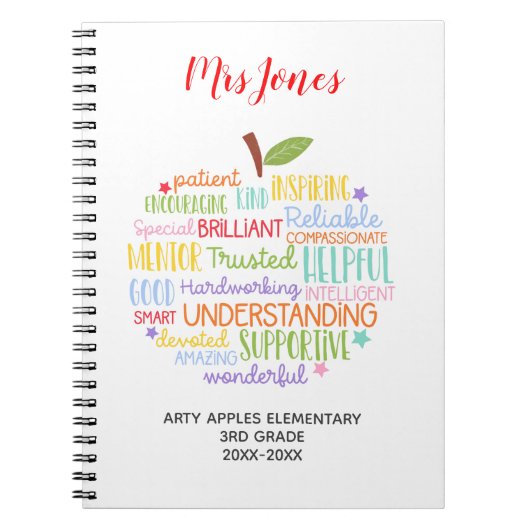 Mrs Jones
patient
ENCOURAGING KIND INSPIRING
Special BRILLIANT Reliable
COMPASSIONATE
MENTOR Trusted HELPFUL
GOOD Hardworking INTELLIGENT
SMART UNDERSTANDING
devoted
AMAZING SUPPORTIVE
wonderful
ARTY APPLES ELEMENTARY
3RD GRADE
20XX-20XX